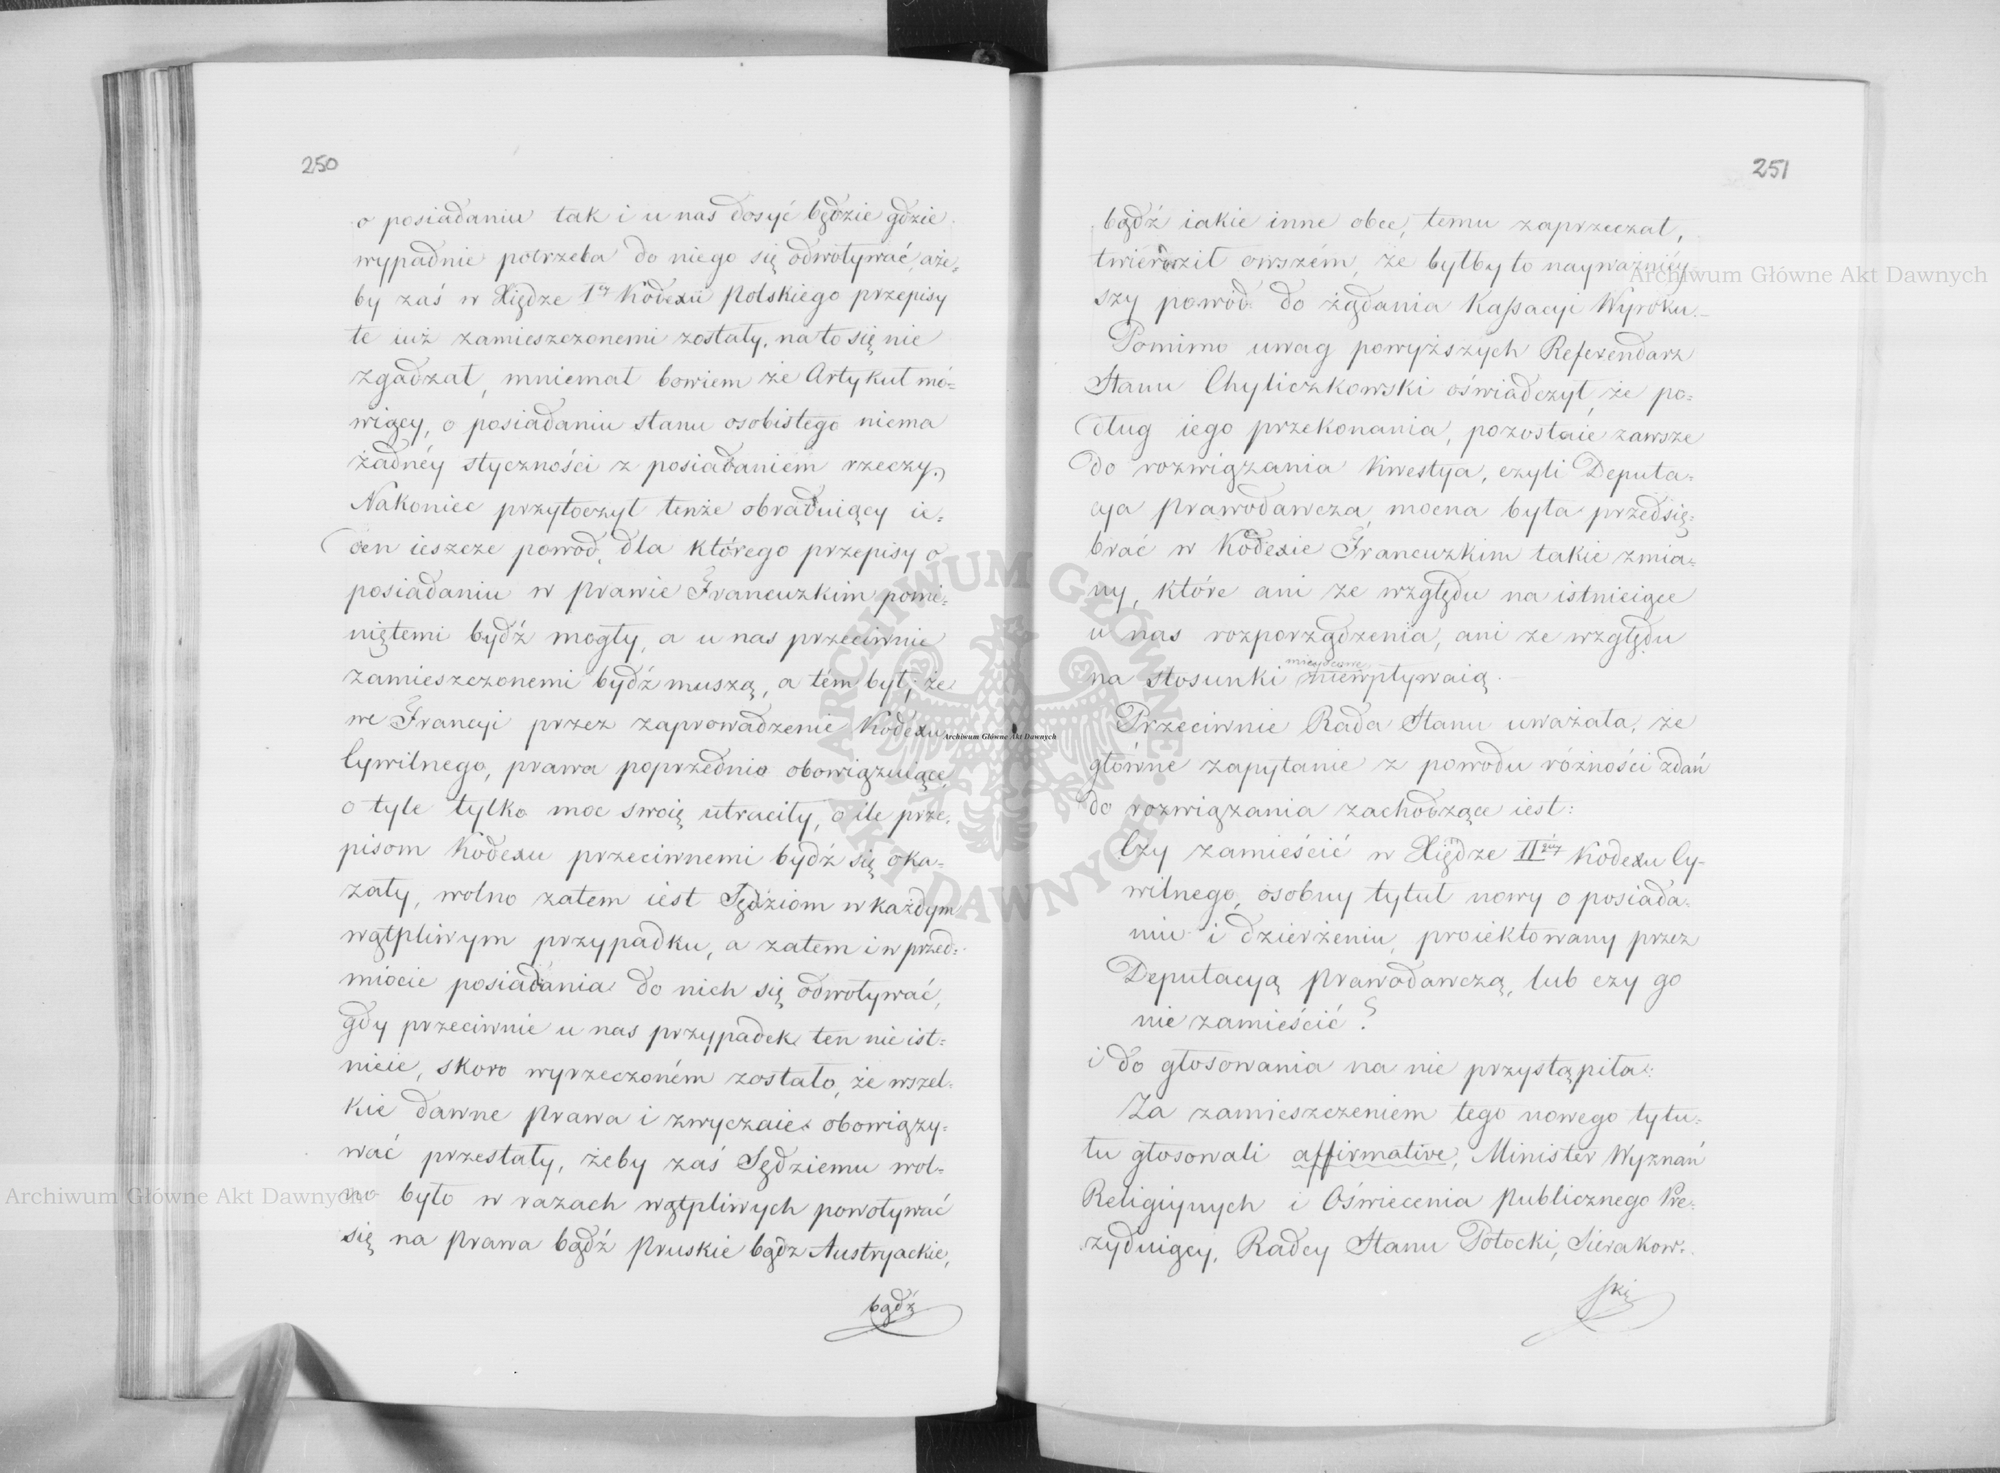 250
o posiadaniu tak i u nas dosyć będzie gdzie
wypadnie potrzeba do niego się odwoływać, aże=
by zaś w Xiędze 1ey Kodexu Polskiego przepisy
te iuż zamieszczonemi zostały, na to się nie
zgadzał, mniemał bowiem że Artykuł mó=
wiący, o posiadaniu stanu osobistego niema
żadnéy styczności z posiadaniem rzeczy.
Nakoniec przytoczył tenże obraduiący ie=
den ieszcze powód, dla którego przepisy o
posiadaniu w prawie Francuzkim pomi=
niętemi bydź mogły, a u nas przeciwnie
zamieszczonemi bydź muszą, a tém był, że
we Francyi przez zaprowadzenie Kodexu
Cywilnego, prawa poprzednio obowiązuiące,
o tyle tylko moc swoię utraciły, o ile prze=
pisom Kodexu przeciwnemi bydź się oka=
zały, wolno zatem iest Sędziom w każdym
wątpliwym przypadku, a zatem i w przed=
miocie posiadania do nich się odwoływać,
gdy przeciwnie u nas przypadek ten nie ist=
nieie, skoro wyrzeczoném zostało, że wszel=
kie dawne prawa i zwyczaie obowiązy=
wać przestały, żeby zaś Sędziemu wol=
no było w razach wątpliwych powoływać
się na prawa bądź Pruskie bądz Austryackie,
bądź
251
bądź iakie inne obce, temu zaprzeczał,
twierdził owszém, że byłby to nayważniéy
szy powód do żądania Kassacyi Wyroku.
Pomimo uwag powyższych Referendarz
Stanu Chyliczkowski oświadczył, że po=
dług iego przekonania, pozostaie zawsze
do rozwiązania kwestya, czyli Deputa=
cya Prawodawcza mocna była przedsię=
brać w Kodexie Francuzkim takie zmia=
ny, które ani ze względu na istnieiące
u nas rozporządzenia, ani ze względu
na stosunki mieyscowe niewpływaią.
Przeciwnie Rada Stanu uważała, że
główne zapytanie z powodu różności zdań
do rozwiązania zachodzące iest:
Czy zamieścić w Xiędze IIgiéy Kodexu Cy-
wilnego, osobny tytuł nowy o posiada=
niu i dzierżeniu, proiektowany przez
Deputacyą Prawodawczą, lub czy go
nie zamieścić?
i do głosowania na nie przystąpiła:
Za zamieszczeniem tego nowego tytu=
łu głosowali affirmative, Minister Wyznań
Religiynych i Oświecenia Publicznego Pre=
zyduiący, Radcy Stanu Potocki, Sierakow=
ski
Archiwum Główne Akt Dawnych
Archiwum Główne Akt Dawnych
Archiwum Główne Akt Dawnych
ARCHIWUM GŁÓWNE AKT DAWNYCH